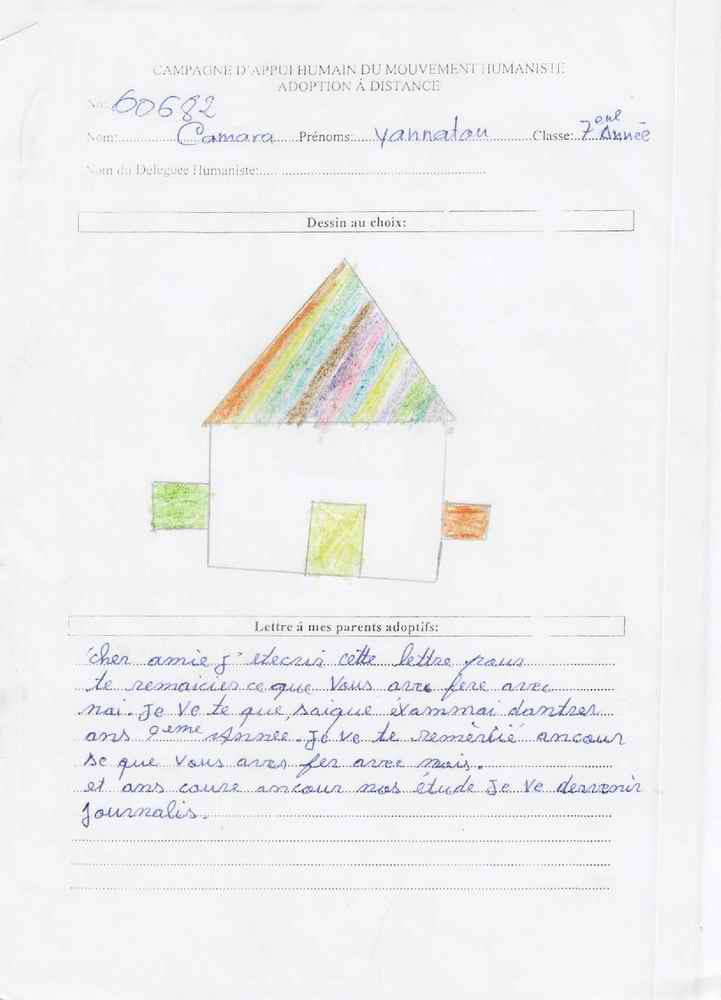 CAMPAGNE D'APPUI HUMAIN DU MOUVEMENT HUMANISTE
ADOPTION Á DISTANCE
No: 60682
Nom: Camara Prénoms: Yannatou Classe: 7eme Année
Nom du Deleguee Humaniste:
Dessin au choix:
Lettre á mes parents adoptifs:
cher amie j' etecrir cette lettre pour
te remaicier ce que Vous avec fere avec
moi. Je Ve te que, saique éxammai dantrer
ans 9eme Année. Je Ve te remèrlié ancour
se que Vous aves fer avec mois.
et ans coure ancour nos étude Je Ve devenir
Journalis.